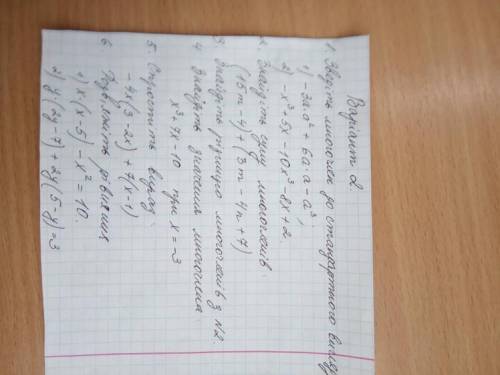 Варіант 2.
1. Зведіть многочлен до стандартного вигляду
1) -3a·a² + 6a·a - a³;
2) -x³ + 5x - 10x³ - 8x + 2
2. Знайдіть суму многочленів.
(13m - 4) + (3m - 4n + 7)
3. Знайдіть різницю многочленів з N2.
4. Знайдіть значення многочлена
x³ + 7x - 10 при x = -3
5. Спростіть вираз.
-4x(3 - 2x) + 7(x - 1)
6. Розв'яжіть рівняння
1) x·(x - 5) - x² = 10.
2) y(2y - 7) + 2y(5 - y) = 3